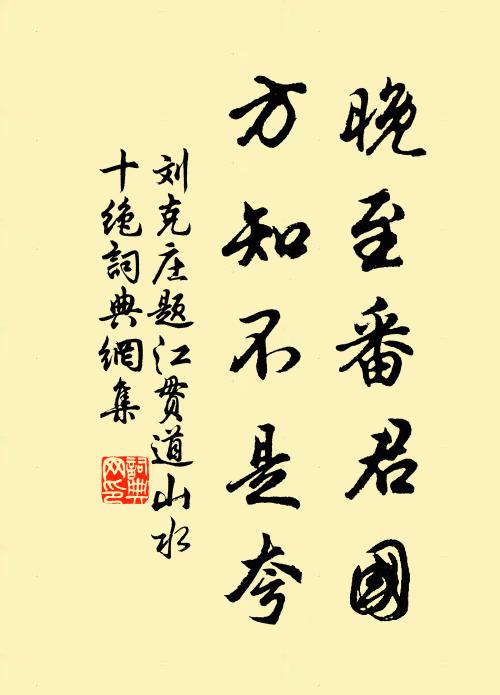 晚至番君國
方知不是夸
刘克庄题江贯道山水
十绝詞典網集
詞典
网印